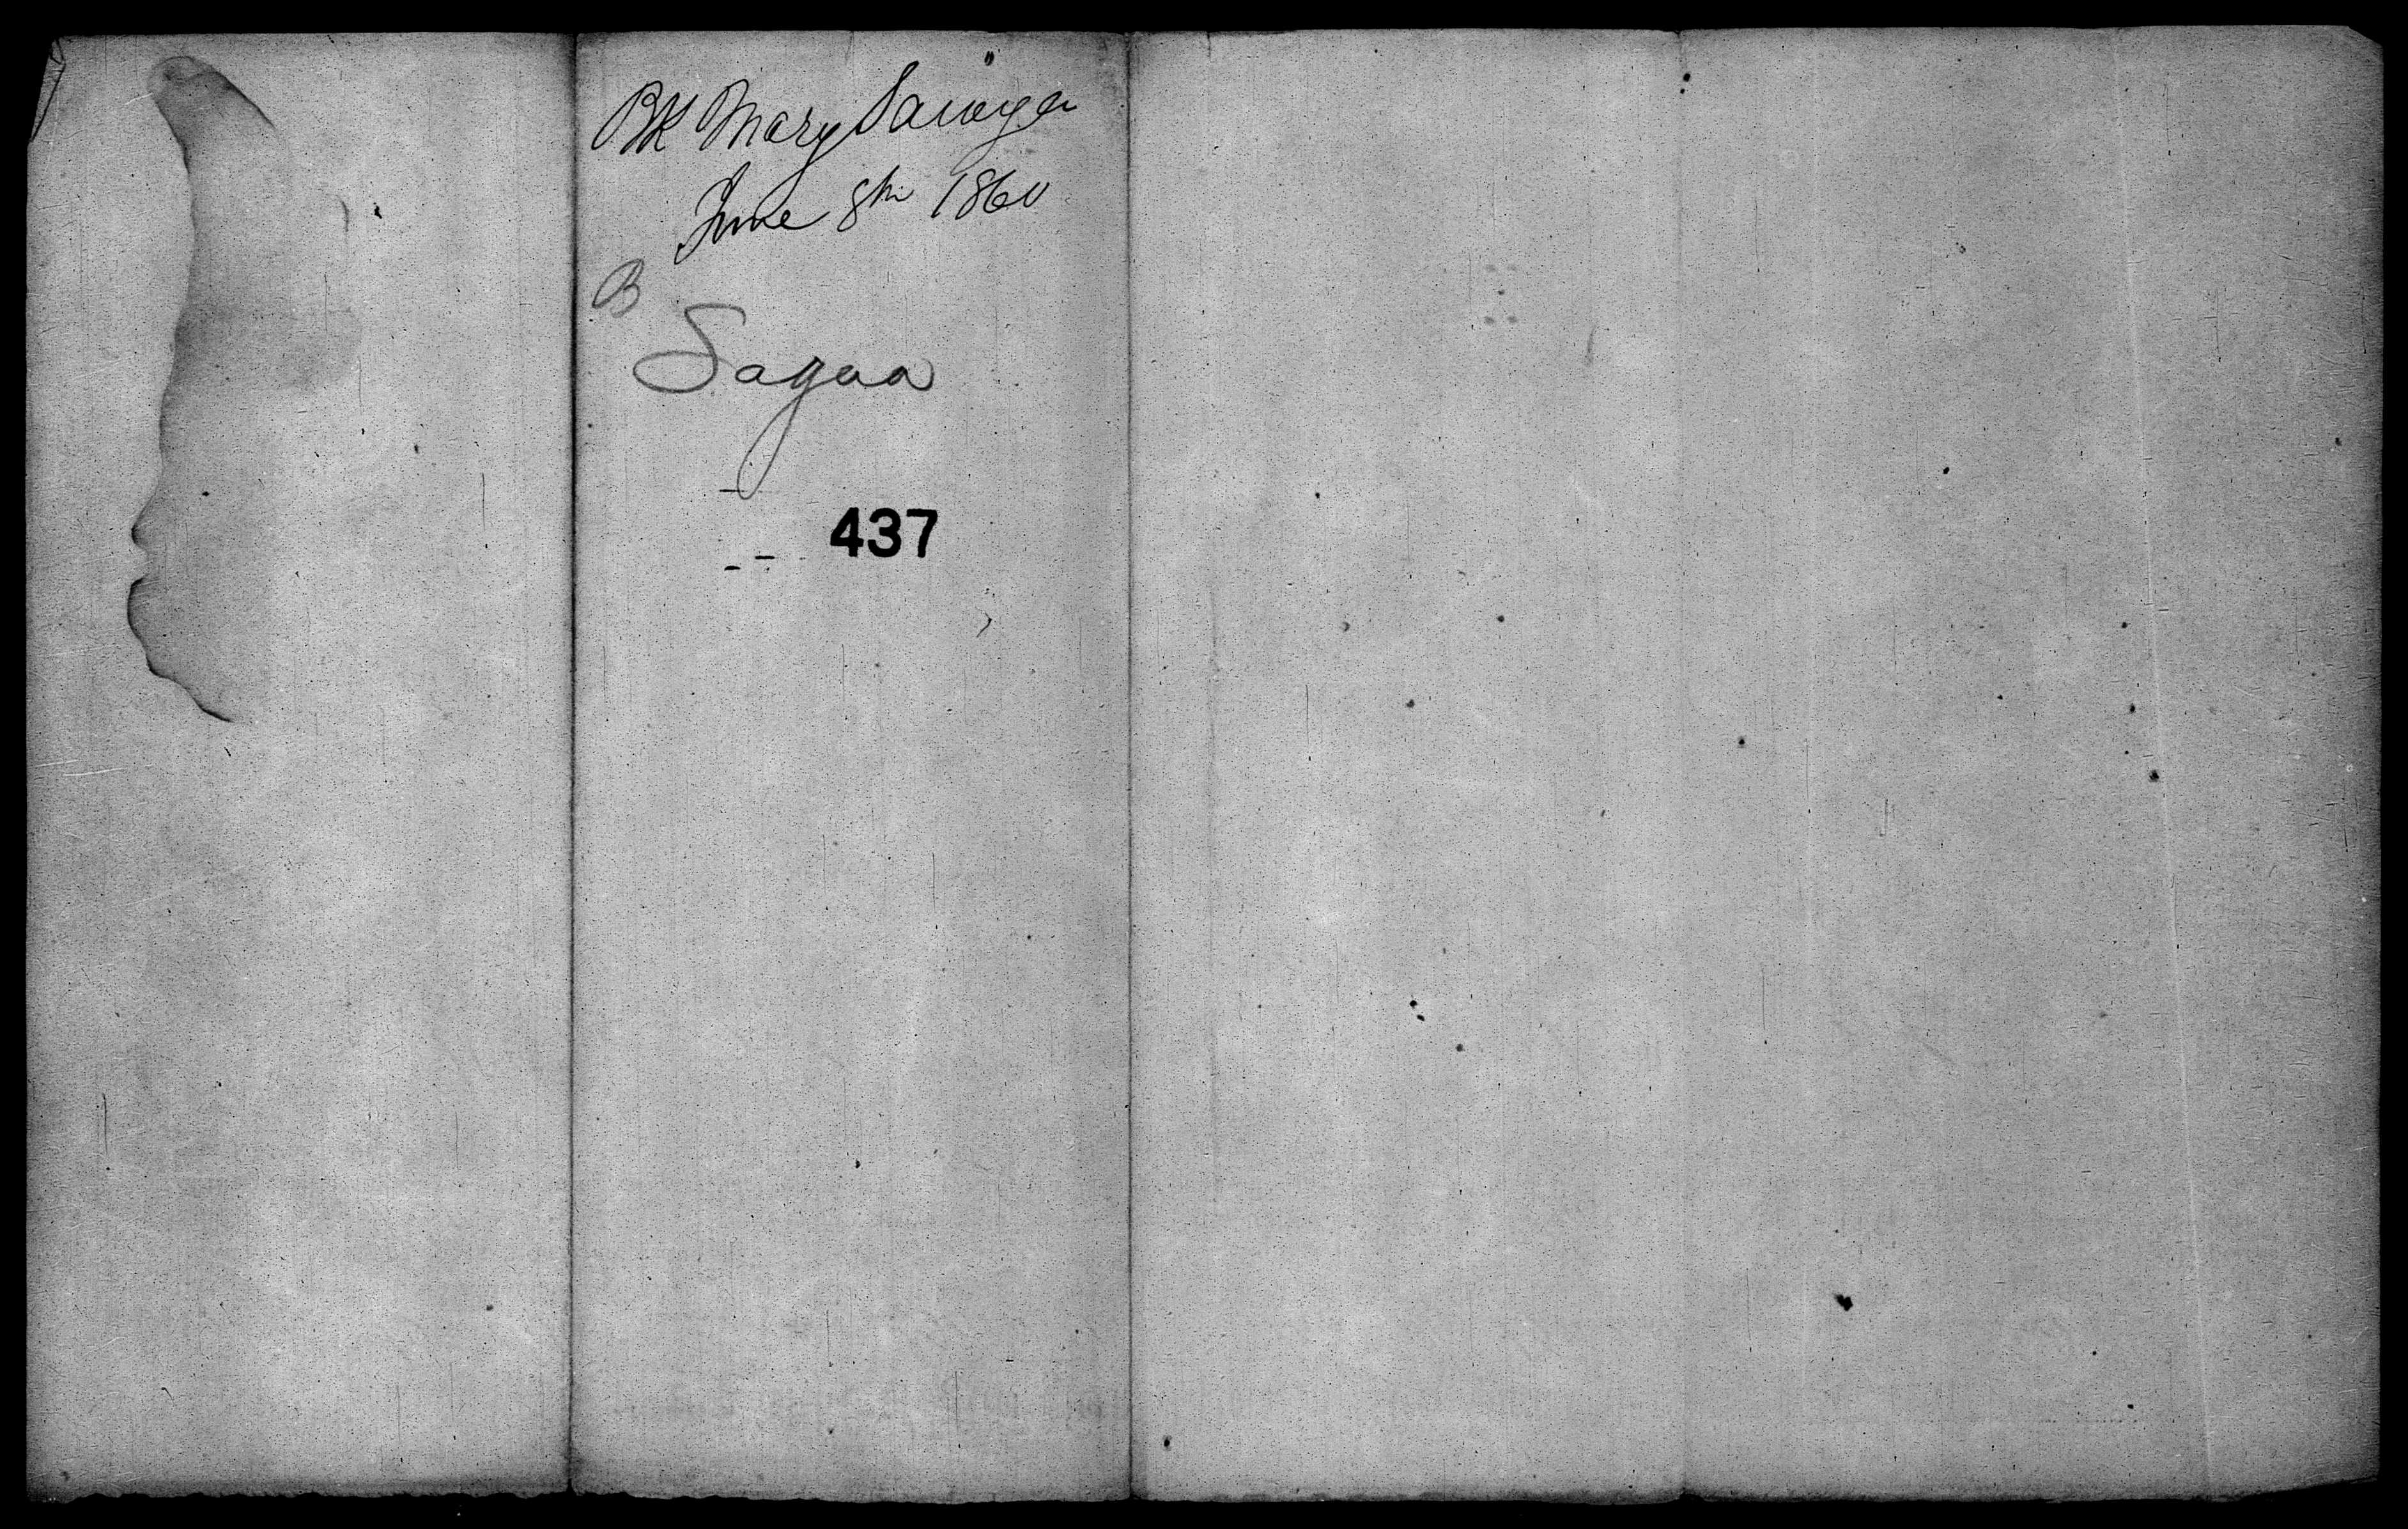 BK Mary Sawyer
June 8th 1860
B
Sagua
437